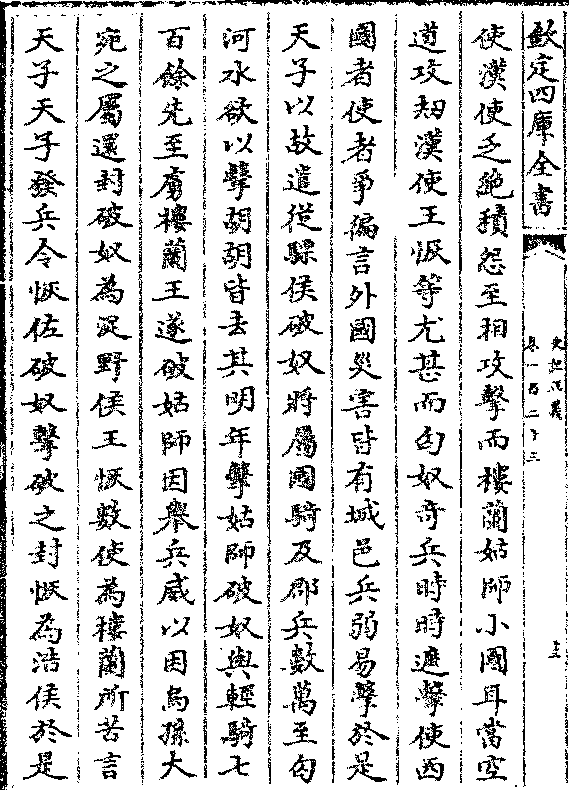 欽定四庫全書
史記正義
卷一百二十三
使漢使乏絶積怨至相攻擊而樓蘭姑師小國耳當空
道攻刼漢使王恢等尤甚而匈奴竒兵時時遮擊使西
國者使者爭徧言外國災害皆有城邑兵弱易擊於是
天子以故遣從驃侯破奴將屬國騎及郡兵數萬至匈
河水欲以擊胡胡皆去其明年擊姑師破奴與輕騎七
百餘先至虜樓蘭王遂破姑師因舉兵威以困烏孫大
宛之屬還封破奴為浞野侯王恢數使為樓蘭所苦言
天子天子發兵令恢佐破奴擊破之封恢為浩侯於是